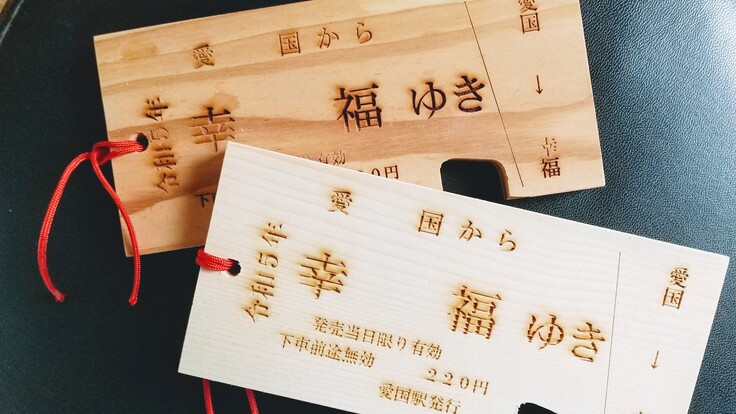 愛国から
令和5年
幸福ゆき
有効
0円
下
愛国
↓
幸福
愛国から
令和5年
幸福ゆき
発売当日限り有効
下車前途無効
220円
愛国駅発行
愛国
↓